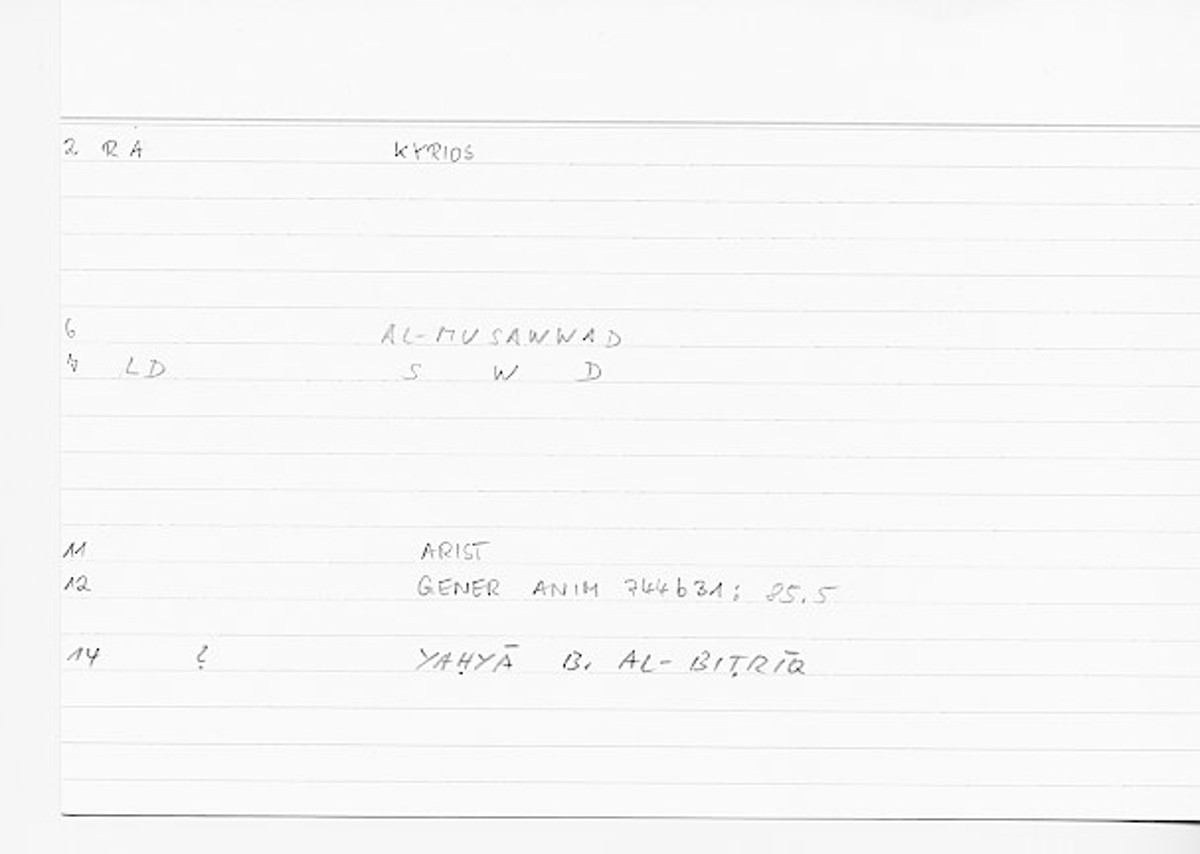 2 RA KYRIOS
6 AL-MUSAWWAD
7 LD S W D
11 ARIST
12 GENER ANIM 744b31; 85.5
14 ? YAḤYĀ B. AL-BIṬRĪQ